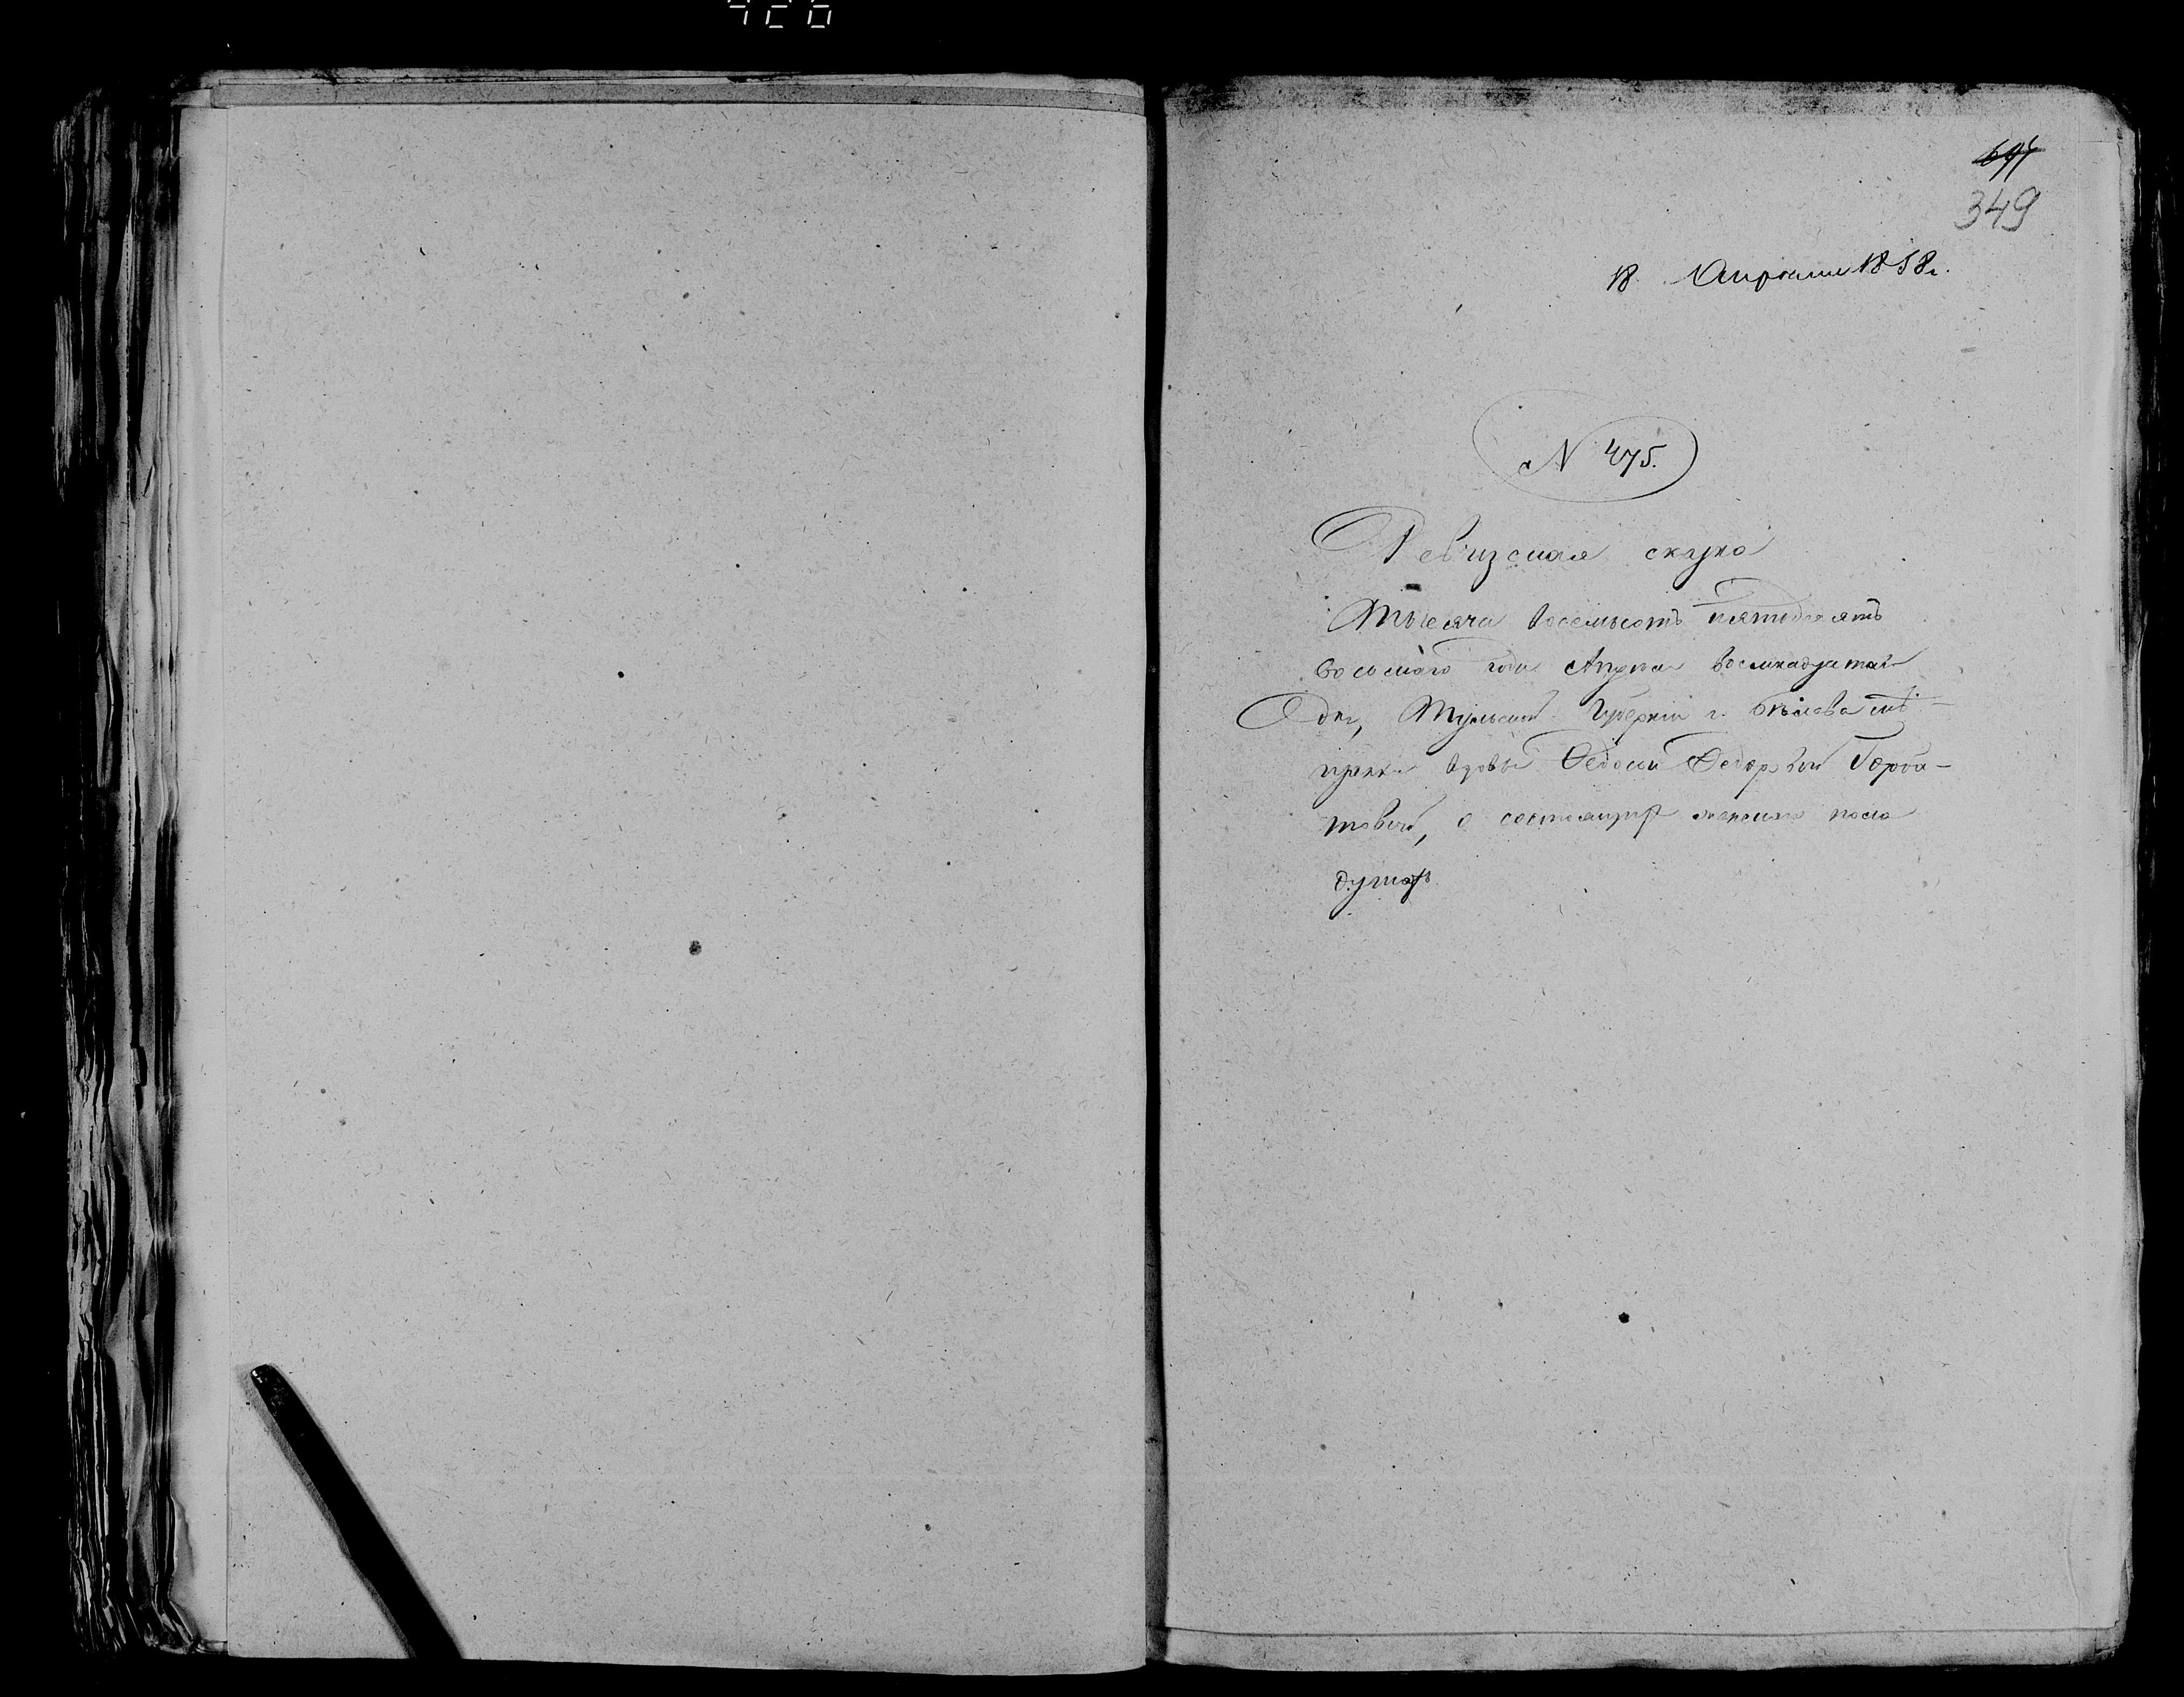 349
18 Апреля 1858 г.
N 475.
Ревизская сказка
Тысяча восемьсотъ пятидесятъ
восьмаго года Апреля восмнадцатаго
дня, Тульской Губернии г. Бѣлева мѣ-
щанки вдовы Федосьи Федоровой Горба-
товой, о состоящихъ женскаго пола
душахъ